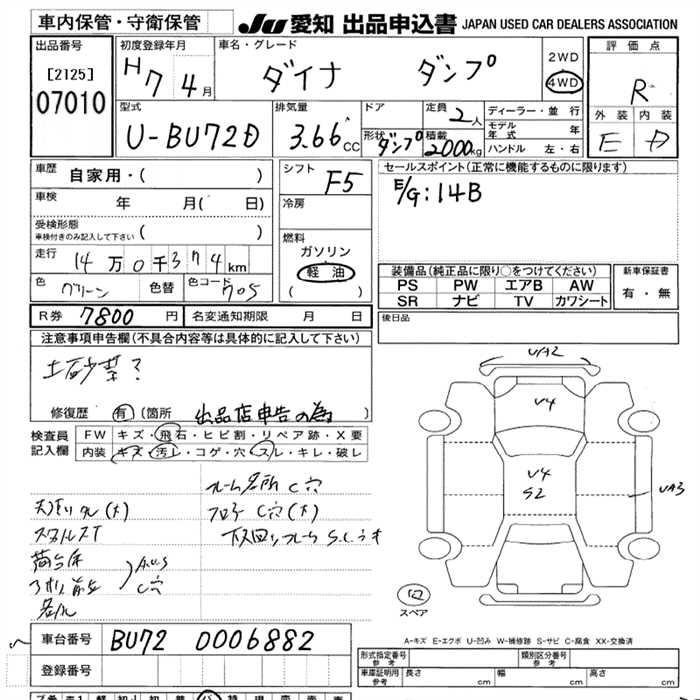 車内保管・守衛保管
JU 愛知 出品申込書 JAPAN USED CAR DEALERS ASSOCIATION
出品番号
[2125]
07010
初度登録年月
H7 4月
車名・グレード
ダイナ ダンプ
2WD
4WD
評価点
R
外装 内装
E D
型式
U-BU72D
排気量
3.66 CC
ドア
形状 ダンプ
定員 2人
積載 2000kg
ディーラー・並行
モデル年式 年
ハンドル 左・右
車歴 自家用・( )
車検 年 月( 日)
受検形態
車検付きのみ記入して下さい ( )
走行 14万0千374km
色 グリーン 色替 色コード 705
シフト F5
冷房
燃料
ガソリン
軽油
( )
セールスポイント(正常に機能するものに限ります)
E/G:14B
装備品(純正品に限り○をつけてください)
PS PW エアB AW
SR ナビ TV カワシート
新車保証書
有・無
R券 7800円 名変通知期限 月 日
後日品
注意事項申告欄(不具合内容等は具体的に記入して下さい)
土砂禁?
修復歴 有 (箇所 出品店申告の為 )
検査員記入欄
FW キズ・飛石・ヒビ割・リペア跡・X要
内装 キズ・汚レ・コゲ・穴・スレ・キレ・破レ
C穴
フロア C穴(大)
S.C.ウキ
A.U.S
C穴
UA2
U4
U4
S2
UA3
スペア
A-キズ E-エクボ U-凹み W-補修跡 S-サビ C-腐食 XX-交換済
車台番号 BU72 0006882
登録番号
形式指定番号 参考
類別区分番号 参考
車庫証明用 参考 長さ cm 幅 cm 高さ cm